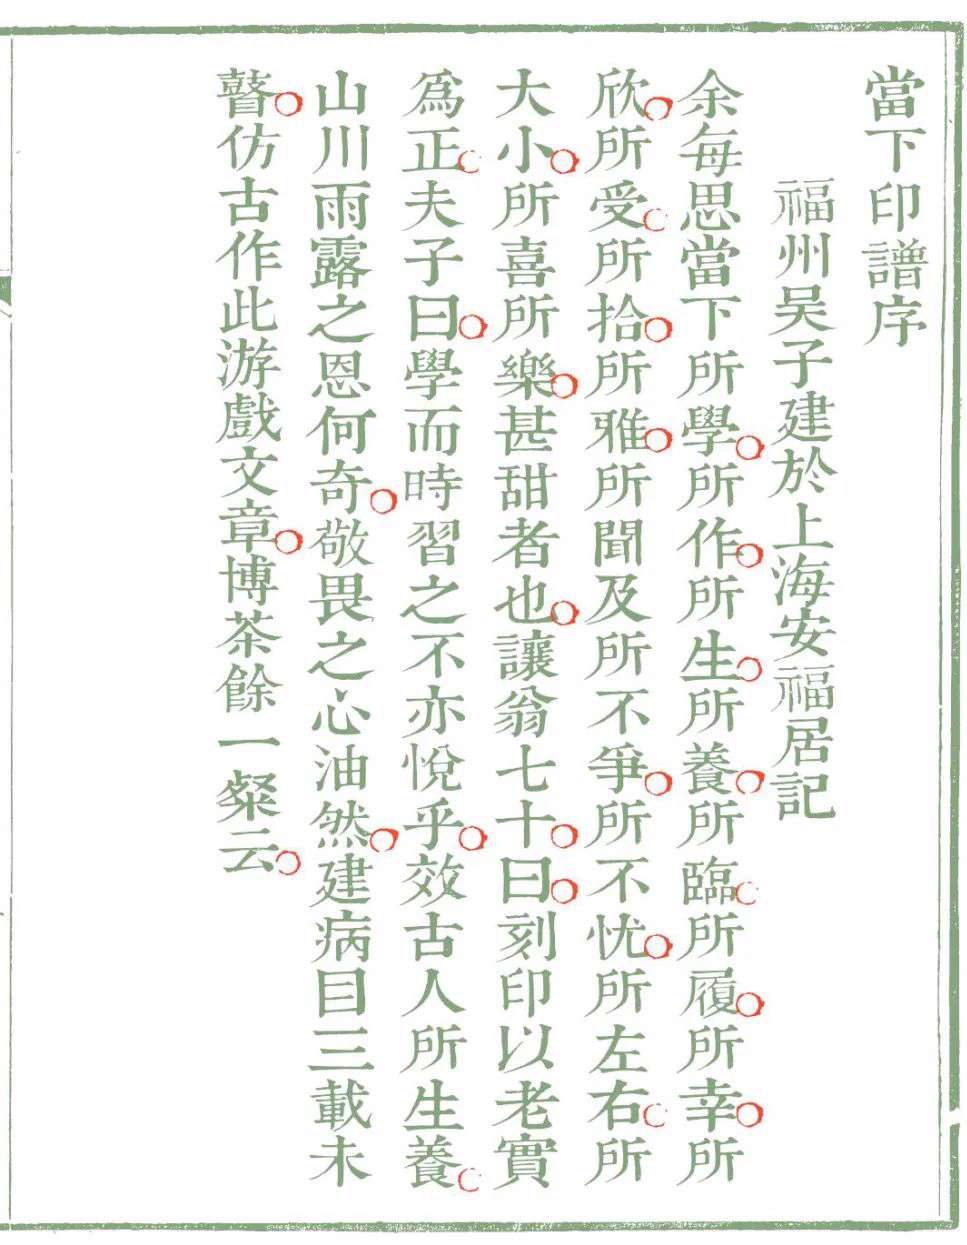 當下印譜序
福州吴子建於上海安福居記
余每思當下所學○所作○所生○所養○所臨○所履○所幸○所
欣○所受○所拾○所雅○所聞及所不爭○所不忧○所左右○所
大小○所喜所樂○甚甜者也○讓翁七十○曰○刻印以老實
爲正○夫子曰○學而時習之不亦悅乎○效古人所生養○
山川雨露之恩何奇○敬畏之心油然○建病目三載未
瞽○仿古作此游戲文章○博茶餘一粲云○